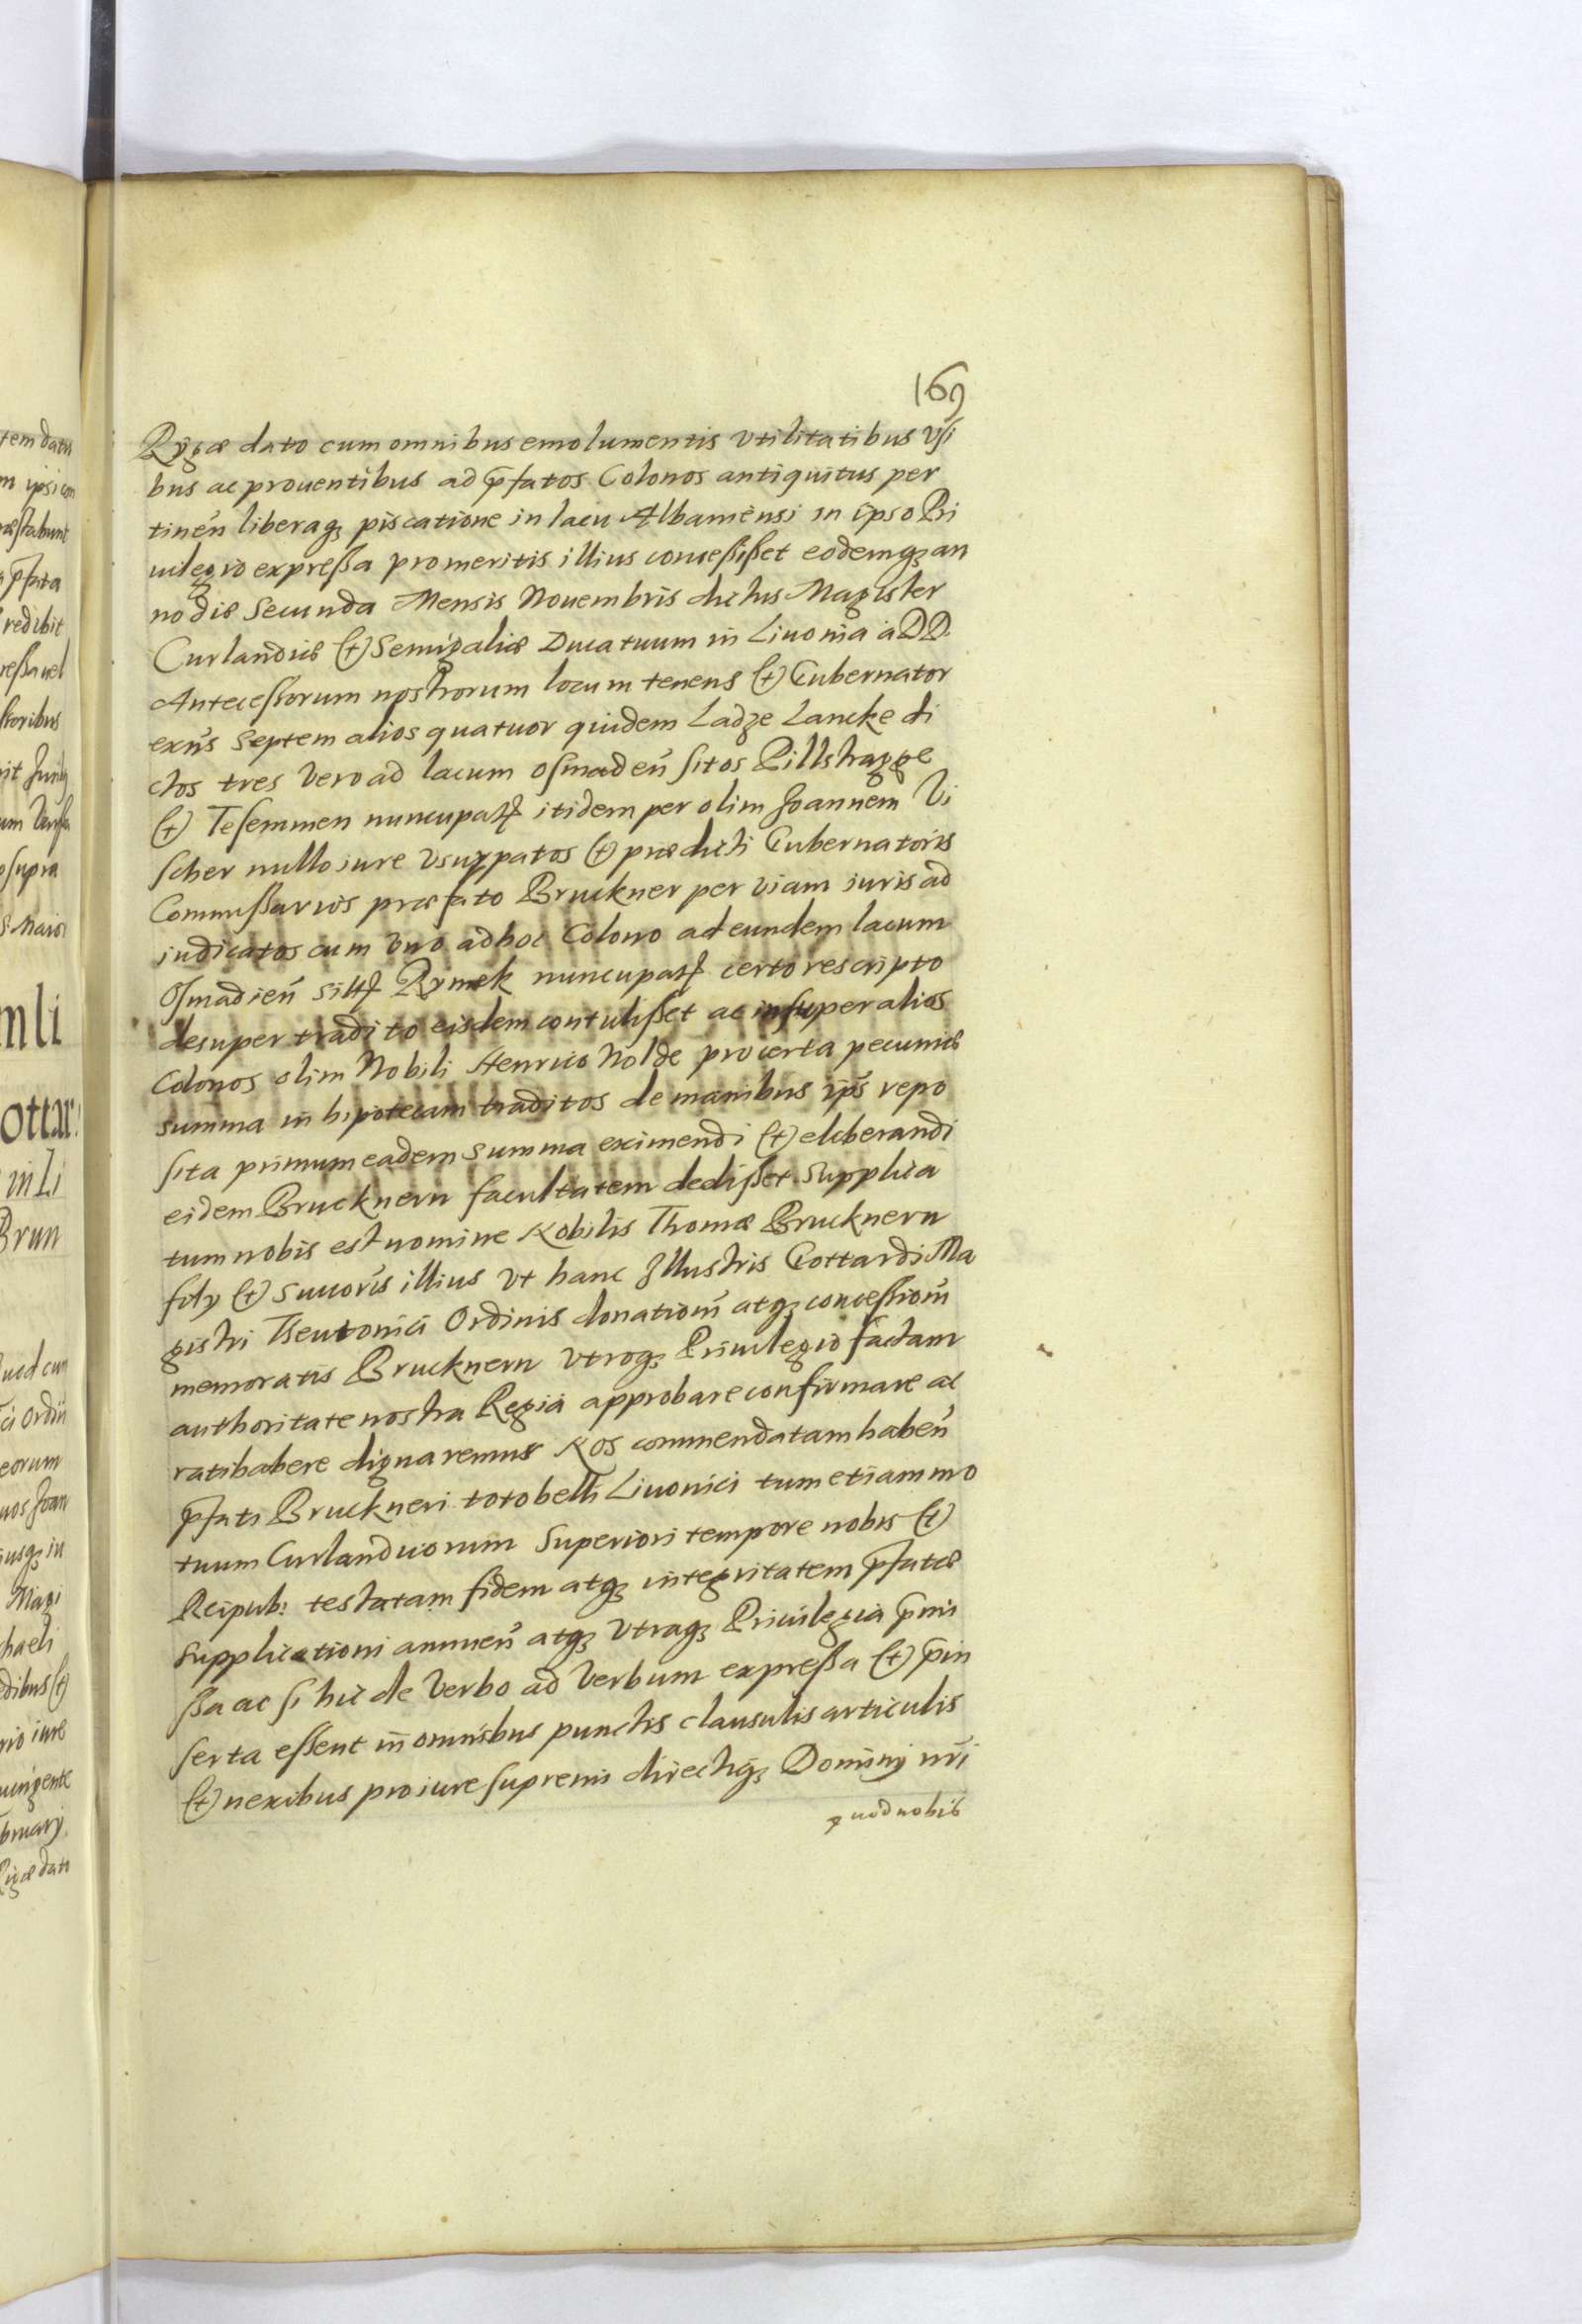 169
Rygæ dato cum omnibus emolumentis vtilitatibus vsi
bus ac prouentibus ad p̄fatos Colonos antiquitus per
tineñ liberaqȝ piscatione in lacu Albamensi in ipso Pri
uilegio expressa pro meritis illius concessisset eodemqȝ an
no die Secunda Mensis Nouembris dictus Magister
Curlandiæ et Semigaliæ Ducatuum in Liuonia a DD
Antecessorum nostrorum locum tenens et Gubernator
exñs Septem alios quatuor quidem Ladze Lancke di
ctos tres vero ad lacum Osmadeñ sitos Pillstragge
et Tesemmen nuncupatꝭ itidem per olim Joannem Vi
scher nullo iure vsurpatos et prædicti Gubernatoris
Commissarios præfato Bruckner per viam iuris ad
iudicatos cum vno adhoc Colono ad eundem lacum
Osmadieñ sitꝭ Rymek nuncupatꝭ certo rescripto
desuper tradito eisdem contulisset ac insuper alios
Colonos olim Nobili Henrico Nolde pro certa pecuniæ
summa in hipotecam traditos de manibus ips̄ repo
sita primum eadem summa eximendi et eliberandi
eidem Brucknero facultatem dedisset. Supplica
tum nobis est nomine Nobilis Thomæ Bruckneru
fily et Succoris illius vt hanc Illustris Gottardi Ma
gistri Theutonici Ordinis donationē atqȝ concessionē
memoratis Brucknern vtroqȝ Priuilegio factam
authoritate nostra Regia approbare confirmare ac
ratihabere dignaremur Nos commendatam habeñ
p̄fati Bruckneri toto belli Liuonici tum etiam mo
tuum Curlandicorum Superiori tempore nobis et
Reipub: testatam fidem atqȝ integritatem p̄fatæ
supplicationi annueñ atqȝ vtraqȝ Priuilegia p̄mi
ssa ac si hic de verbo ad verbum expressa et p̄in
serta essent in omnibus punctis clausulis articulis
et nexibus pro iure supremi directiqȝ Dominij nr̄i
quod nobis